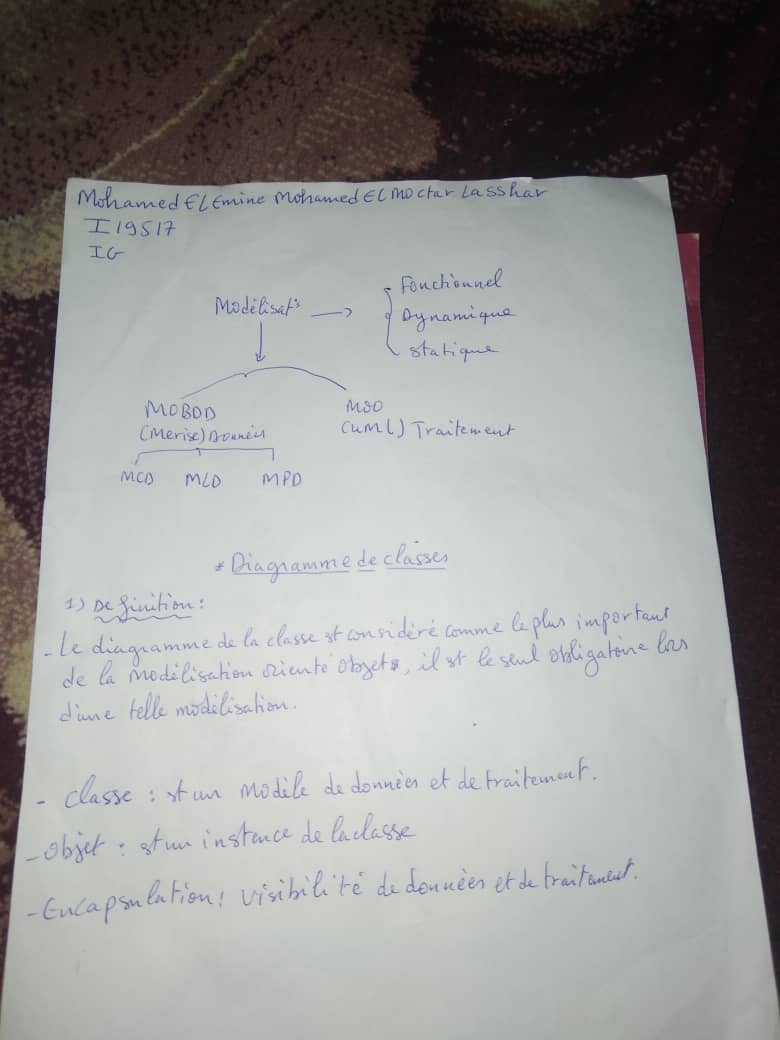 Mohamed EL Emine Mohamed EL Moctar Lasshar
I19517
IG
Modélisat°
- Fonctionnel
Dynamique
statique
MOBDD
(Merise) Données
MCD MLD MPD
MOO
(UML) Traitement
* Diagramme de classes
1) Definition :
- Le diagramme de la classe st considéré comme le plus important
de la modélisation orienté objets, il st le seul obligatoire lors
d'une telle modélisation.
- classe : st un modèle de données et de traitement.
- objet : st un instence de la classe
- Encapsulation : visibilité de données et de traitement.